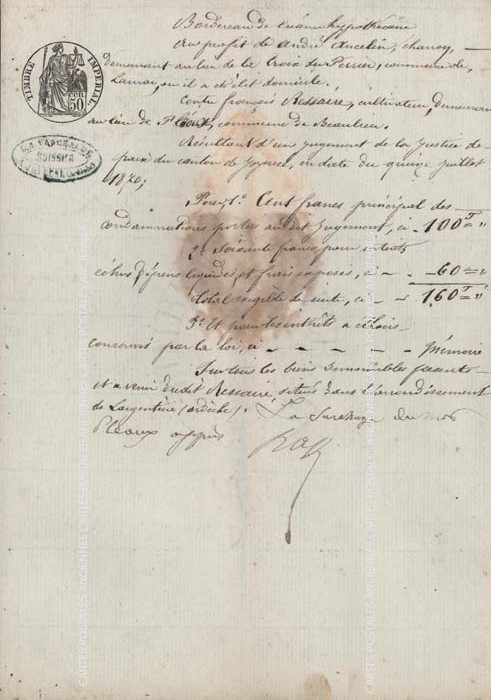 TIMBRE IMPERIAL
50
Bordereau de créance hypothécaire
Au profit de André Ancelin,
demeurant au lieu de la Croix du Perrier, commune de
où il a élit domicile.
Contre françois Ressaire, cultivateur, demeurant
au lieu de commune de Beaulieu.
Résultant d'un jugement de la Justice de
paix du canton de Joyeuse, en date du quinze juillet
1870;
Pour 1° Cent francs principal des
condamnations portées au dit Jugement, ci 100 f "
2° Soixante francs pour intérêts
échus, dépens liquidés, et frais exposés, ci 60 = "
total exigible de suite, ci 160 f "
3° Et pour les intérêts à échoir
conservés par la loi, ci Mémoire
Sur tous les biens Immeubles présents
et à venir du dit Ressaire, situés dans l'arrondissement
de Largentière (ardèche). La Surcharge du mot
approuvée
CARTES POSTALES ANCIENNES